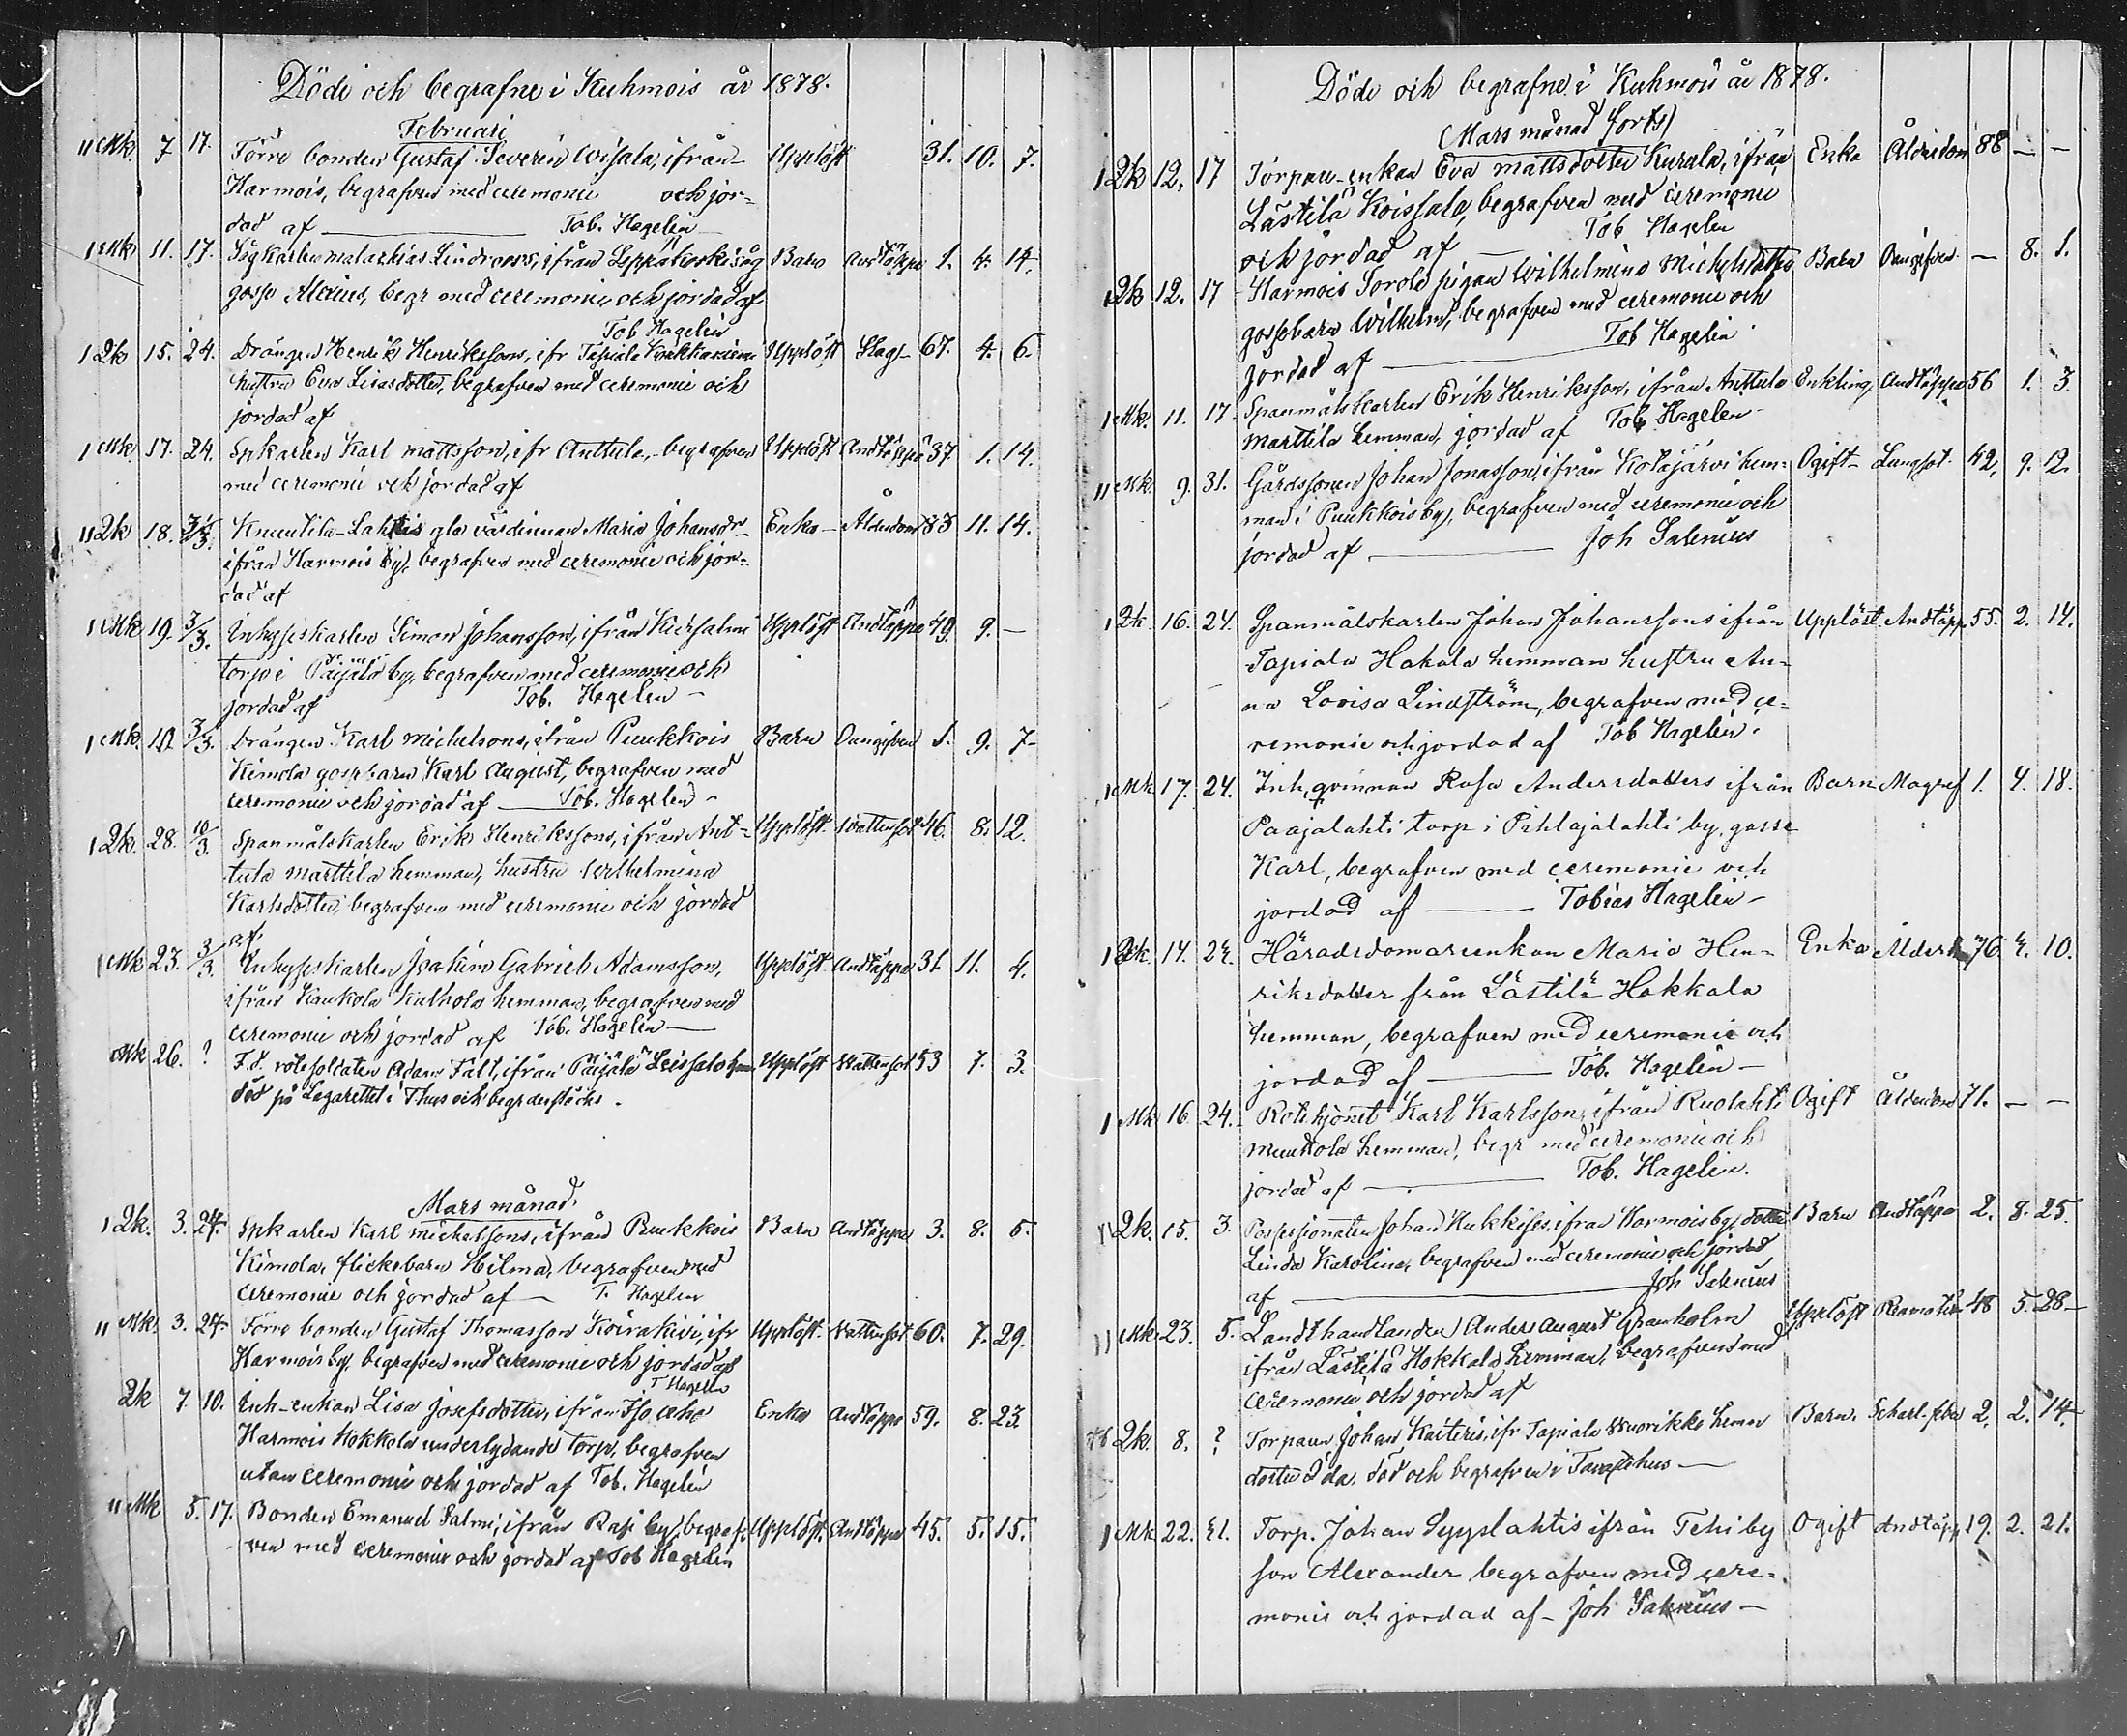 Döde och begrafne i Kuhmois år 1878.
Februari
11 Mk. 7 17. Förre bonden Gustaf Severin Wisala, ifrån Upplöst 31. 10. 7.
Harmois, begrafven med ceremonie och jor-
dad af Tob. Hagelin
1 Mk 11. 17. Sågkarlen Malakias Lindroos, ifrån Leppäkoski såg Barn Andtäppa 1. 4. 14.
gosse Alexius, begr med ceremonie och jordad af
Tob Hagelin
1 Qk 15. 24. Drängen Henrik Henriksson, ifr Tapiala Upplöst Slag- 67. 4. 6.
hustru Eva Lisasdotter, begrafven med ceremonie och
jordad af
1 Mk. 17. 24. Spkarlen Karl Mattsson, ifr Anttula, begrafven Upplöst Andtäppa 37 1. 14.
med ceremonie och jordad af
11 Qk 18. 3/3. Knuutila-Lahtis gla värdinnan Maria Johansdr Enka Ålderdom 83 11. 14.
ifrån Harmois by, begrafven med ceremonie och jor-
dad af
1 Mk 19. 3/3. Inhyseskarlen Simon Johansson, ifrån Upplöst Andtäppa 49. 9. —
torp i Päijälä by, begrafven med ceremonie och
jordad af Tob. Hagelin —
1 Mk. 19. 3/3. Drängen Karl Michelsons, ifrån Puukkois Barn Oangifven 1. 9. 7-
Kimola gossbarn Karl August, begrafven med
ceremonie och jordad af Tob. Hagelin -
1 Qk. 28. 10/3. Spanmålskarlen Erik Henrikssons, ifrån Ant- Upplöst Vattensot 46. 8. 12.
tula Marttila hemman, hustru Wilhelmina
Karlsdotter, begrafven med ceremonie och jordad
af
1 Mk 23. 3/3. Inhyseskarlen Joakim Gabriel Adamsson, Upplöst Andtäppa 31. 11. 4.
ifrån Kaukola hemman, begrafven med
ceremonie och jordad af Tob. Hagelin —
Mk 26. ? F.d. rotesoldaten Adam Fält, ifrån Päijälä Upplöst Vattensot 53 7. 3.
död på Lazarettet i Thus och begr derstädes.
Mars månad
1 Qk. 3. 24. Spkarlen Karl Michelssons, ifrån Puukkois Barn Andtäppa 3. 8. 5.
Kimola, flickebarn Hilma, begrafven med
ceremonie och jordad af — T. Hagelin
11 Mk. 3. 24. Förre bonden Gustaf Thomasson Koirakivi, ifr Upplöst. Vattensot 60. 7. 29.
Harmois by, begrafven med ceremonie och jordad af
T Hagelin
Qk 7 10. Inh-enkan Lisa Josefsdotter, ifrån Iso aho Enka Andtäppa 59. 8. 23.
Harmois Hokkola underlydande torp, begrafven
utan ceremonie och jordad af Tob. Hagelin
11 Mk 5. 17. Bonden Emanuel Salmi, ifrån by, begraf- Upplöst. Andtäppa 45. 5. 15.
ven med ceremonie och jordad af Tob Hagelin
Döde och begrafne i Kuhmois år 1878.
(Mars månad forts)
1 Qk 12. 17 Torpare-enkan Eva Mattsdotter Kurala, ifrån Enka Ålderdom 88 — —
Lästilä Koissala, begrafven med ceremonie
och jordad af — Tob Hagelin
1 Qk 12. 17 Harmois Sorola pigan Wilhelmina Michelsdotters Barn Oangifven — 8. 1.
gossebarn Wilhelm, begrafven med ceremonie och
jordad af — Tob Hagelin
1 Mk. 11. 17. Spanmålskarlen Erik Henriksson, ifrån Anttula Enkling Andtäppa 56 1. 3.
Marttila hemman, jordad af Tob Hagelin
11 Mk. 9. 31. Gårdssonen Johan Jonasson, ifrån Kotajärvi hem- Ogift Lungsot 42, 9. 12.
man i Puukkois by, begrafven med ceremonie och
jordad af — Joh Salenius
1 Qk. 16. 24. Spanmålskarlen Johan Johanssons ifrån Upplöst. Andtäpp. 55. 2. 14.
Tapiala Hakala hemman hustru An-
na Lovisa Lindström, begrafven med ce-
remonie och jordad af Tob Hagelin.
1 Mk. 17. 24. Inh, qvinnan Rosa Andersdotters ifrån Barn Magref 1. 4. 18.
Paajalahti torp i Pihlajalahti by, gosse
Karl, begrafven med ceremonie och
jordad af — Tobias Hagelin —
1 Qk. 14. 24. Häradsdomareenkan Maria Hen- Enka Ålderd 76 4. 10.
riksdotter från Lästilä Hakkala
hemman, begrafven med ceremonie och
jordad af — Tob. Hagelin —
1 Mk 16 24. Rotehjonet Karl Karlsson, ifrån Ruolahti Ogift Ålderdom 71. — —
hemman, begr med ceremonie och
jordad af — Tob. Hagelin.
11 Qk. 15. 3. Possessionaten Johan ifrån Harmois by dotter Barn Andtäppa 2. 8. 25.
Linda Karolina, begrafven med ceremonie och jordad
af — Joh Salenius
11 Mk. 23. 5. Landthandlanden Anders August Granholm Upplöst 48 5. 28 —
ifrån Lästilä Hokkala hemman, begrafven med
ceremonie och jordad af
Qk. 8. ? Torparen Johan Kaiteris, ifr Tapiala Vuorikko hemn Barn. Scharl. feber 2. 2. 14.
dotter Ida, död och begrafven i Tavastehus —
1 Mk 22. 21. Torp. Johan Syyslahtis ifrån Tehi by Ogift Andtäpp 19. 2. 21.
son Alexander begrafven med cere-
monie och jordad af — Joh Salenius —